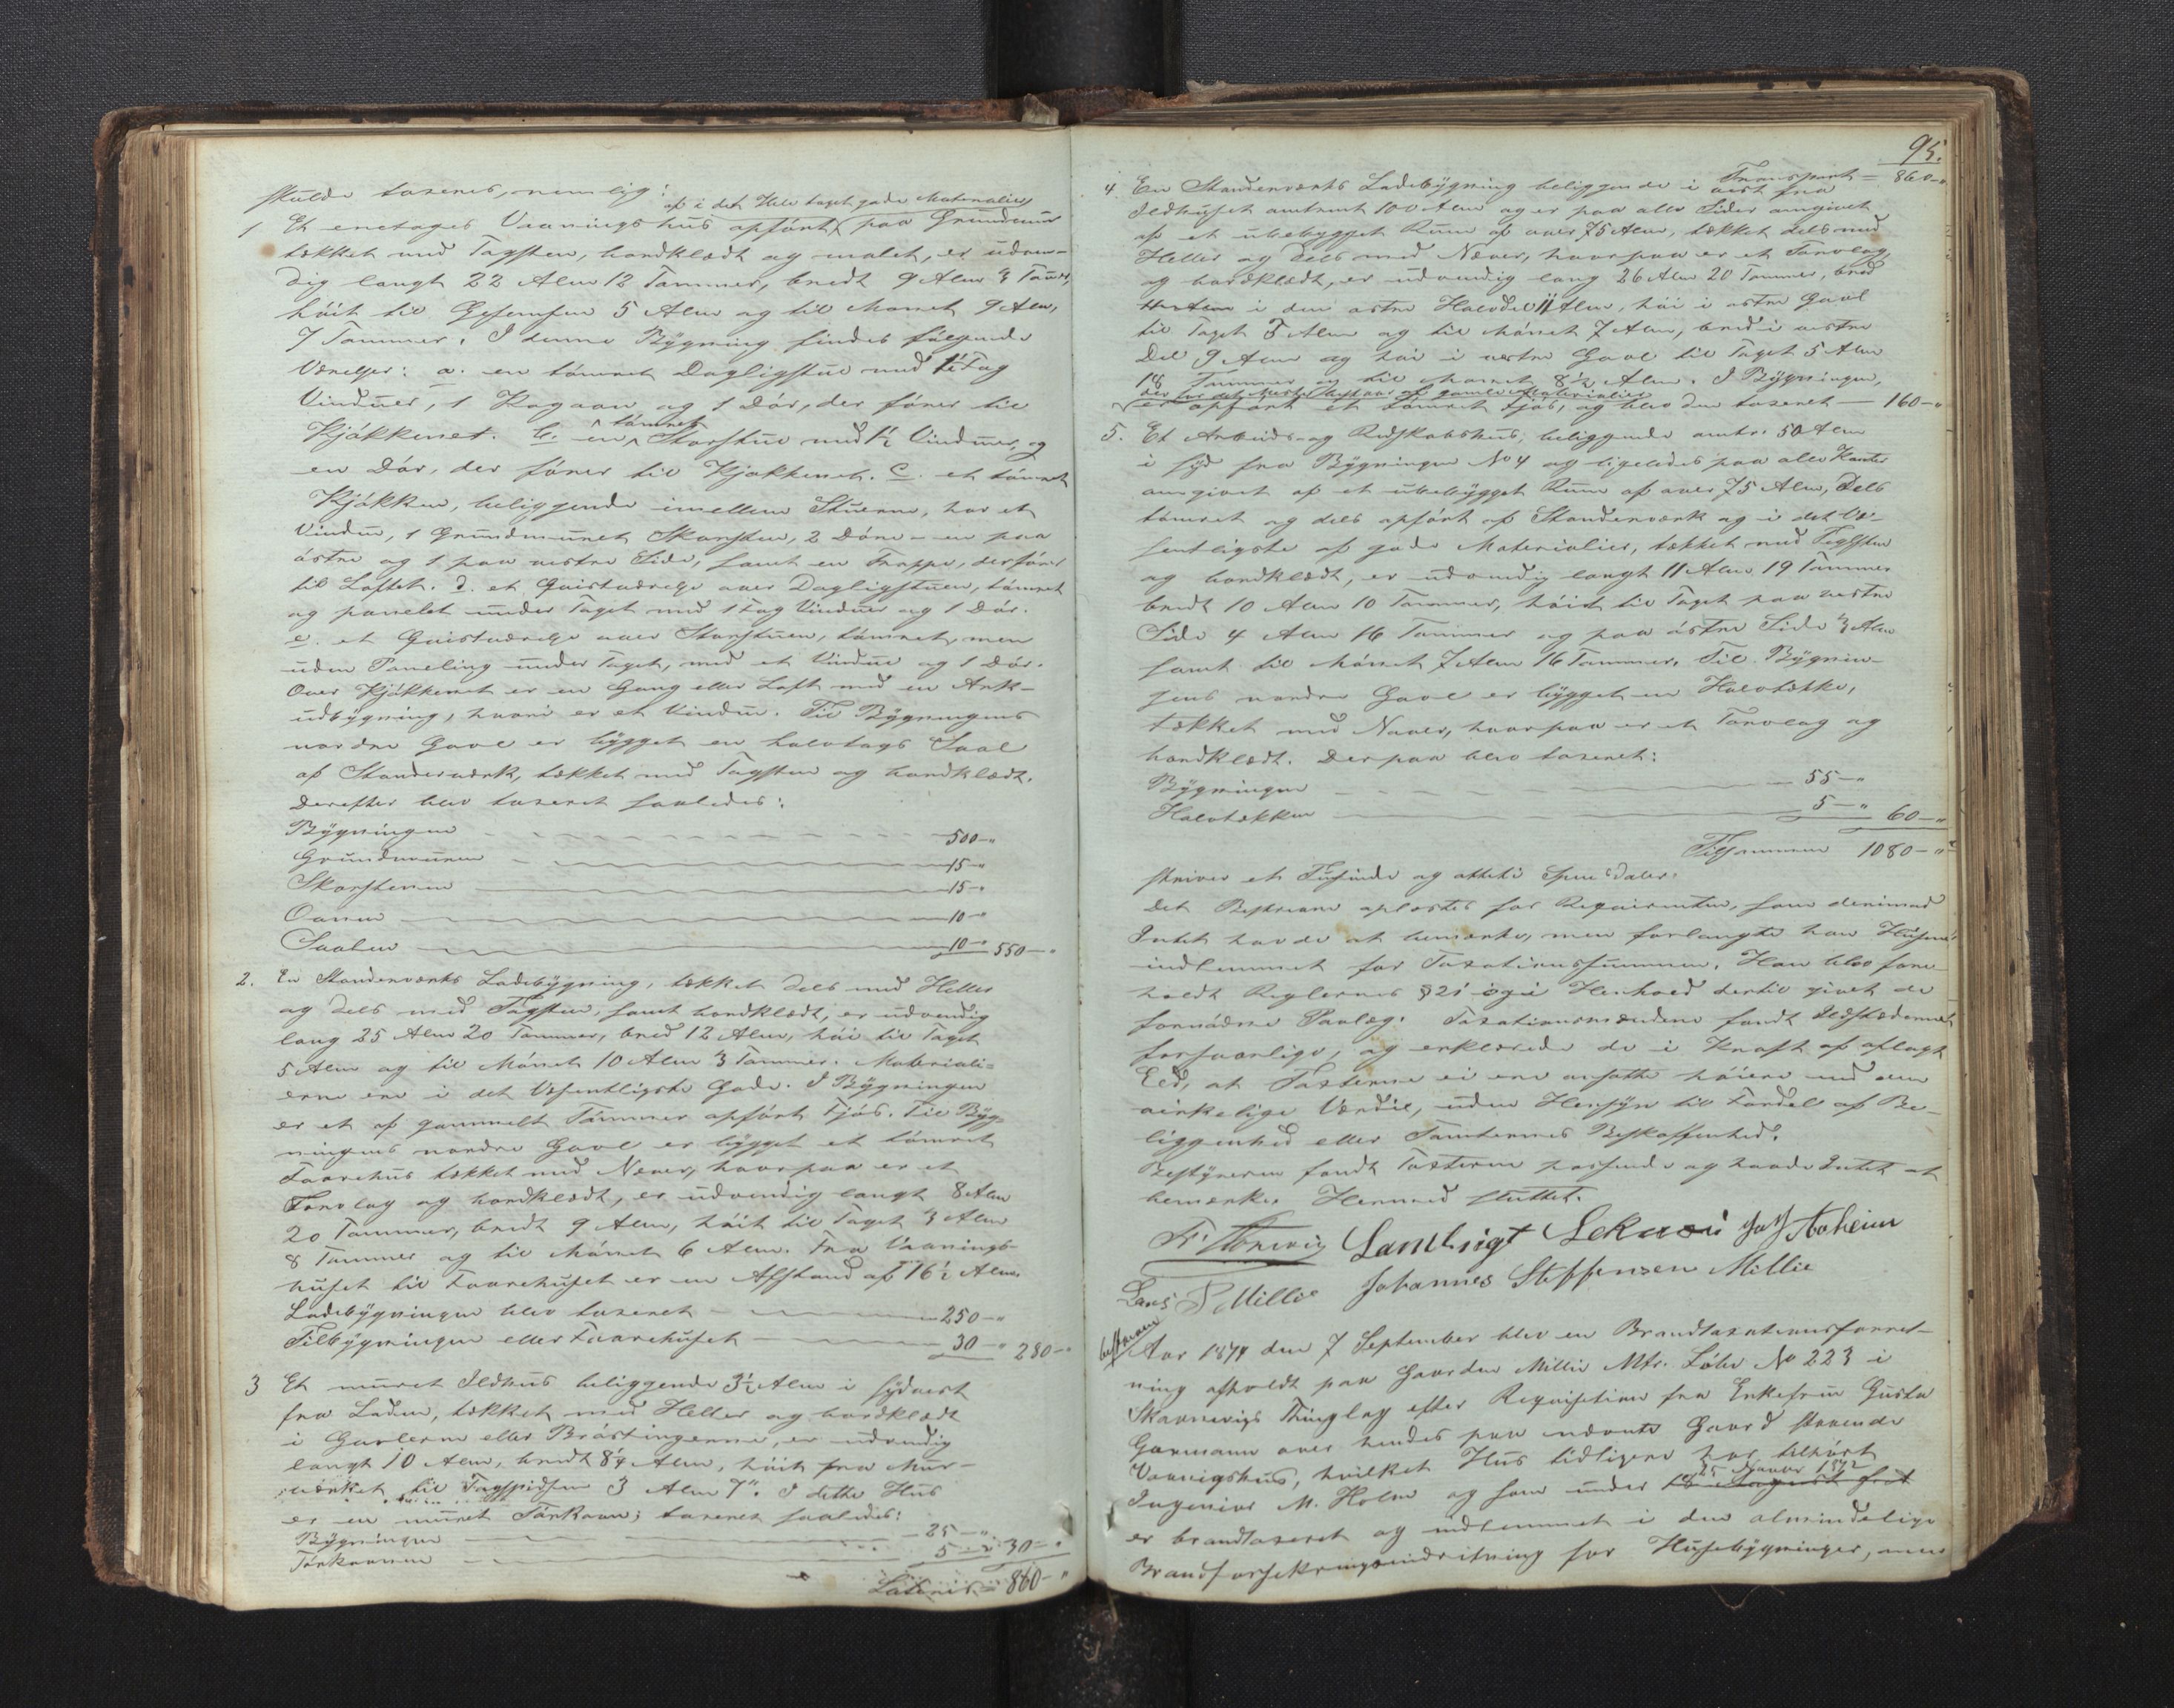 skulde taxeres, nemlig:
af i det Hele taget gode Materialier
1 Et enetages Vaaningshus opført paa Grundmuur
tækket med Tagsten, bordklædt og malet, er udven-
dig langt 22 Alen 12 Tommer, bredt 9 Alen 3 Tommer,
høit til Gesemsen 5 Alen og til Mønet 9 Alen,
7 Tommer. I denne Bygning findes følgende
Værelser: a. en tømret Dagligstue med 1½ Fag
Vinduer, 1 Kogeovn og 1 Dør, der fører til
Kjøkkenet. b. en tømret Storstue med 1½ Vinduer og
en Dør, der fører til Kjøkkenet. c. et tømret
Kjøkken, beliggende imellem Stuerne, har et
Vindue, 1 Grundmuret Skorsten, 2 Døre - en paa
østre og 1 paa vestre Side, samt en Trappe, der fører
til Loftet. d. et Qvistværelse over Dagligstuen, tømret
og panelet under Taget med 1 Fag Vinduer og 1 Dør.
e. et Qvistværelse over Storstuen, tømret, men
uden Paneling under Taget, med et Vindue og 1 Dør.
Over Kjøkkenet er en Gang eller Loft med en Ark-
udbygning, hvori er et Vindue. Til Bygningens
nordre Gavl er bygget en halvtags Sval
af Standerværk, tækket med Tagsten og bordklædt.
Derefter blev taxeret saaledes:
Bygningen 500 - "
Grundmuren 15 - "
Skorstenen 15 - "
Ovnen 10 - "
Svalen 10 - " 550 - "
2. En Standerværks Ladebygning, tækket dels med Heller
og dels med Tagsten, samt bordklædt, er udvendig
lang 25 Alen 20 Tommer, bred 12 Alen, høi til Taget
5 Alen og til Mønet 10 Alen 3 Tommer. Materiali-
erne ere i det Væsentligste Gode. I Bygningen
er et af gammelt Tømmer opført Fjøs. Til Byg-
ningens nordre Gavl er bygget et tømret
Faarehus tækket med Næver, hvorpaa er et
Torvlag og bordklædt, er udvendig langt 8 Alen
20 Tommer, bredt 9 Alen, høit til Taget 3 Alen
8 Tommer og til Mønet 6 Alen. Fra Vaanings-
huset til Faarehuset er en Afstand af 16½ Alen.
Ladebygningen blev taxeret 250 - "
Tilbygningen eller Faarehuset 30 - " 280 - "
3 Et muret Ildhus beliggende 3½ Alen i sydvest
fra Laden, tækket med Heller og bordklædt
i Gavlerne eller Brøstingerne, er udvendig
langt 10 Alen, bredt 8¼ Alen, høit fra Mur-
værket til Tagspidsen 3 Alen 7". I dette Hus
er en muret Tørkeovn; taxeret saaledes:
Bygningen 25 - "
Tørkeovnen 5 - " 30 - "
Lateris 860 - "
95.
Transport 860 - "
4 En Standerværks Ladebygning beliggende i vest fra
Ildhuset omtrent 100 Alen og er paa alle Sider omgivet
af et ubebygget Rum af over 75 Alen, tækket dels med
Heller og dels med Næver, hvorpaa er et Torvlag,
og bordklædt, er udvendig lang 26 Alen 20 Tommer, bred
i den østre Halvdel 11 Alen, høi i østre Gavl
til Taget 3 Alen og til Mønet 7 Alen, bred i vestre
Del 9 Alen og høi i vestre Gavl til Taget 5 Alen
18 Tommer og til Mønet 8½ Alen. I Bygningen,
der for det Meste bestaar af gamle Materialier
er opført et tømret Fjøs, og blev den taxeret 160 - "
5. Et Arbeids- og Redskabshus, beliggende omtr. 50 Alen
i syd fra Bygningen No 4 og ligeledes paa alle Kanter
omgivet af et ubebygget Rum af over 75 Alen, Dels
tømret og dels opført af Standerværk og i det Væ-
sentligste af gode Materialier, tækket med Teglsten
og bordklædt, er udvendig langt 11 Alen 19 Tommer
bredt 10 Alen 10 Tommer, høit til Taget paa vestre
Side 4 Alen 16 Tommer og paa østre Side 3 Alen
samt til Mønet 7 Alen 16 Tommer. Til Bygnin-
gens nordre Gavl er bygget en Halvtække,
tækket med Næver, hvorpaa er et Torvlag og
bordklædt. Derpaa blev taxeret:
Bygningen 55 - "
Halvtækken 5 - " 60 - "
Tilsammen 1080 - "
skriver et Tusinde og otteti Speciedaler.
Det Beskrevne oplæstes for Requirenten, som derimod
Intet havde at bemærke, men forlangte han Husene
indlemmet for Taxationssummen. Han blev fore-
holdt Reglernes § 21 og i Henhold dertil givet de
fornødne Paalæg. Taxationsmændene fandt Ildstæderne
forsvarlige, og erklærede de i Kraft af aflagt
Eed, at Taxterne ei ere ansatte høiere end den
virkelige Værdie, uden Hensyn til Fordel af Be-
liggenhed eller Tomternes Beskaffenhed.
Bestyreren fandt Taxterne passende og havde Intet at
bemærke. Hermed sluttet.
Lars Millie Johannes Steffensen Millie
Aar 1874 den 7 September blev en Brandtaxationsforret-
ning afholdt paa Gaarden Millie Mtr. Løbe No 223 i
Skaanevigs Thinglag efter Requisition fra Enkefrue Gusta
Garmann over hendes paa nævnte Gaard staaende
Vaanigshus, hvilket Hus tidligere har tilhørt
25 Januar 1872
Ingeniør M. Holm og som under 18 August
er brandtaxeret og indlemmet i den almindelige
Brandforsikringsindretning for Husebygninger, men